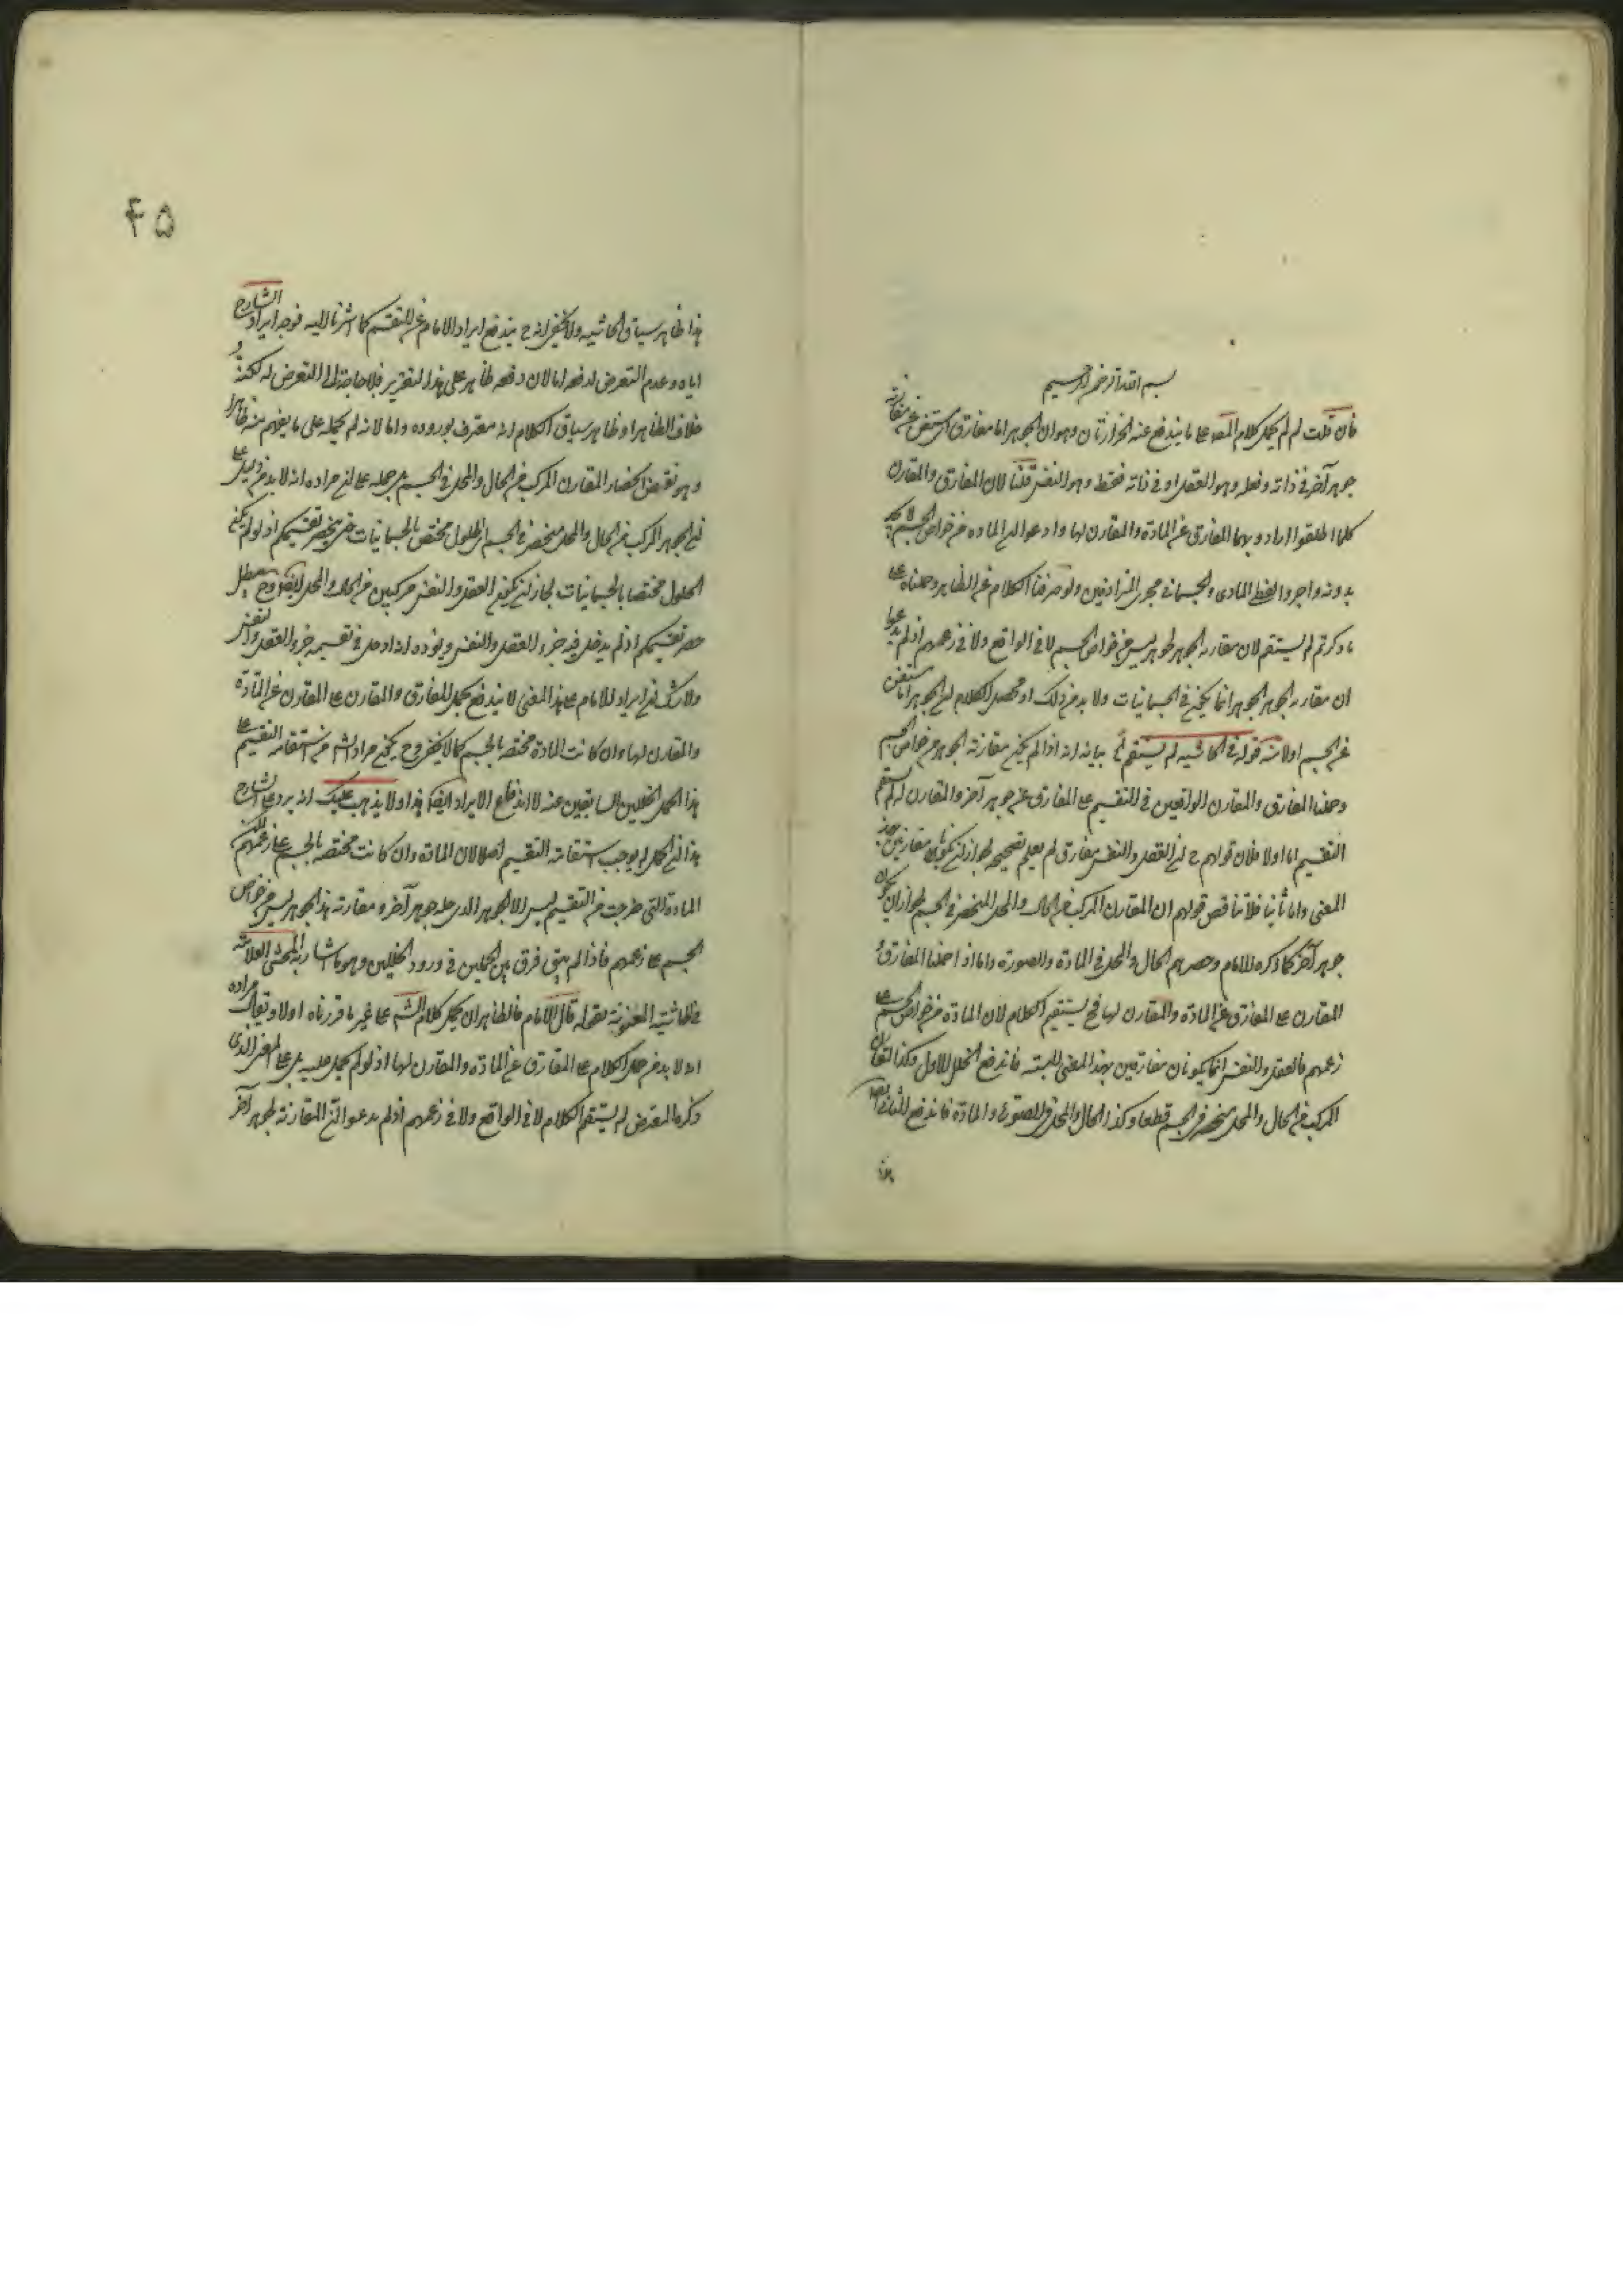 بسم الله الرحمن الرحيم
فان قلت لم لم يحمل كلام المص على ما يندفع عنه الحزازتان وهو ان الجوهر اما مفارق اى مستغن عن مقارنة
جوهر آخر فى ذاته وفعله وهو العقل او فى ذاته فقط وهو النفس قلنا لان المفارق والمقارن
كلما اطلقوا ارادوا بهما المفارق عن المادة والمقارن لها وادعوا ان المادة من خواص الجسم لا توجد
بدونه واجروا لفظ المادى والجسمانى مجرى المترادفين ولو صرفنا الكلام عن الظاهر وحملناه على
ما ذكرتم لم يستقم لان مقارنة الجوهر لجوهر ليس من خواص الجسم لا فى الواقع ولا فى زعمهم اذ لم يدعوا
ان مقارنة الجوهر لجوهر انما يكون فى الجسمانيات ولا بد من ذلك او محصل الكلام ان الجوهر اما مستغن
عن الجسم اولا منه قوله فى الحاشيه لم يستقم بيانه انه اذا لم يكن مقارنة الجوهر من خواص الجسم
وحملنا المفارق والمقارن الواقعين فى التقسيم على المفارق عن جوهر آخر والمقارن له لم يستقم
التقسيم اما اولا فلان قولهم ح ان العقل والنفس مفارق لم يعلم تصحيحه لجواز ان يكونا مقارنين بهذا
المعنى واما ثانيا فلتناقض قولهم ان المقارن المركب من الحال والمحل المنحصر فى الجسم لجواز ان يكون
جوهر آخر كما ذكره الامام وحصرهم الحال والمحل فى المادة والصورة واما اذا حملنا المفارق و
المقارن على المفارق عن المادة والمقارن لها فح يستقيم الكلام لان المادة من خواص الجسم على
زعمهم فالعقل والنفس انما يكونان مفارقين بهذا المعنى البتة فاندفع الخلل الاول وكذا المقارن
المركب من الحال والمحل منحصر فى الجسم قطعا وكذا الحال والمحل فى الصورة والمادة فاندفع الثانى ايضا
هذا
۴۵
هذا ظاهر سياق الحاشيه ولا يخفى انه ح يندفع ايراد الامام عن التقسيم كما اشرنا اليه فوجه ايراد الشارح
اياه وعدم التعرض لدفعه اما لان دفعه ظاهر على هذا التقرير فلا حاجة الى التعرض له لكنه
خلاف الظاهر او ظاهر سياق الكلام انه معترف بوروده واما لانه لم يحمله على ما يفهم منه ظاهرا
وهو نقض انحصار المقارن المركب من الحال والمحل فى الجسم بل حمله على ان مراده انه لا بد من دليل على
ان الجوهر المركب من الحال والمحل منحصر فى الجسم اى الحلول مختص بالجسمانيات حتى ينحصر تقسيمكم اذ لو لم يكن
الحلول مختصا بالجسمانيات لجاز ان يكون العقل والنفس مركبين من الحال والمحل ايضا وح يبطل
حصر تقسيمكم اذ لم يدخل فيه جزء العقل والنفس ويؤيده انه ادخل فى تقسيمه جزء العقل والنفس
ولا شك ان ايراد الامام على هذا المعنى لا يندفع بحمل المفارق والمقارن على المقارن عن المادة
والمقارن لها وان كانت المادة مختصة بالجسم كما لا يخفى وح يكون مراد الش من استقامة التقسيم على
هذا الحمل الخللين السابقين عنه لا اندفاع الايراد ايضا هذا ولا يذهب عليك انه يرد على الشارح
هذا ان الحمل لا يوجب استقامة التقسيم اصلا لان المادة وان كانت مختصة بالجسم على زعمهم لكن
المادة التى خرجت من التقسيم ليس الا الجوهر الذى حله جوهر آخر ومقارنة هذا الجوهر ليس من خواص
الجسم على زعمهم فاذا لم يبق فرق بين الحملين فى ورود الخللين وهو ما اشار به المحشى العلامة
فى الحاشية المعنونة بقوله قال الامام فالظاهر ان يحمل كلام الش على غير ما قررناه اولا ويقال مراده
انه لا بد من حمل الكلام على المفارق عن المادة والمقارن لها اذ لو لم يحمل عليه بل على المعنى الذى
ذكره المعترض لم يستقم الكلام لا فى الواقع ولا فى زعمهم اذ لم يدعوا ان المقارنة لجوهر آخر